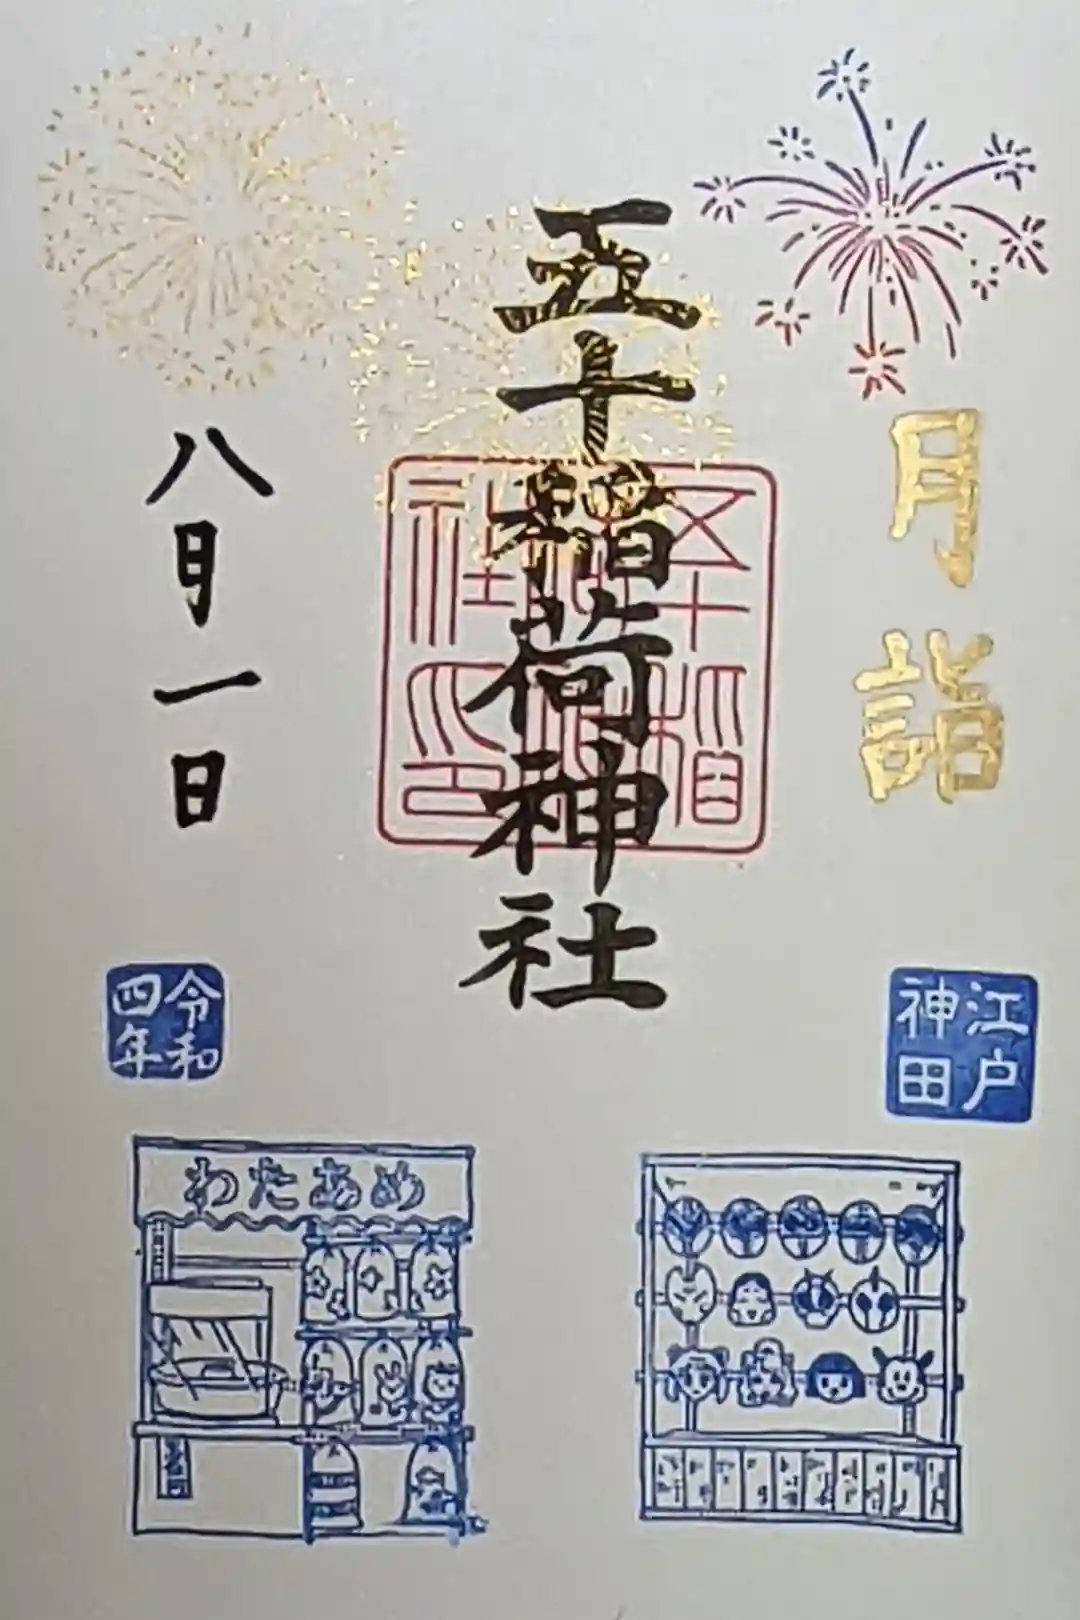 月詣
五十稲荷神社
八月一日
五十稲
社印
江戸
神田
令和
四年
わたあめ